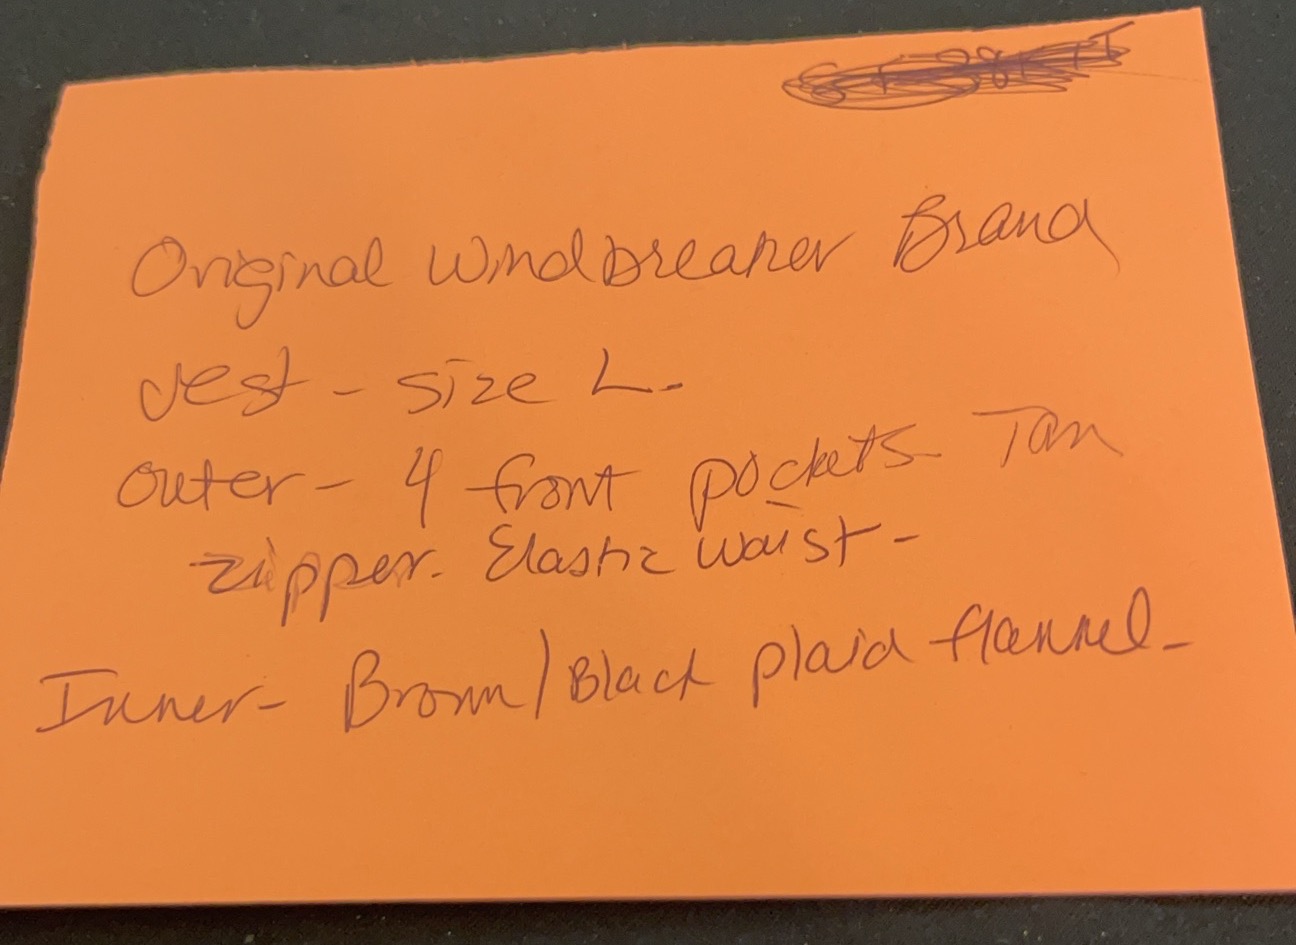 Original Windbreaker Brand
vest - size L -
outer - 4 front pockets - Tan
zipper. Elastic waist -
Inner - Brown/Black plaid flannel -